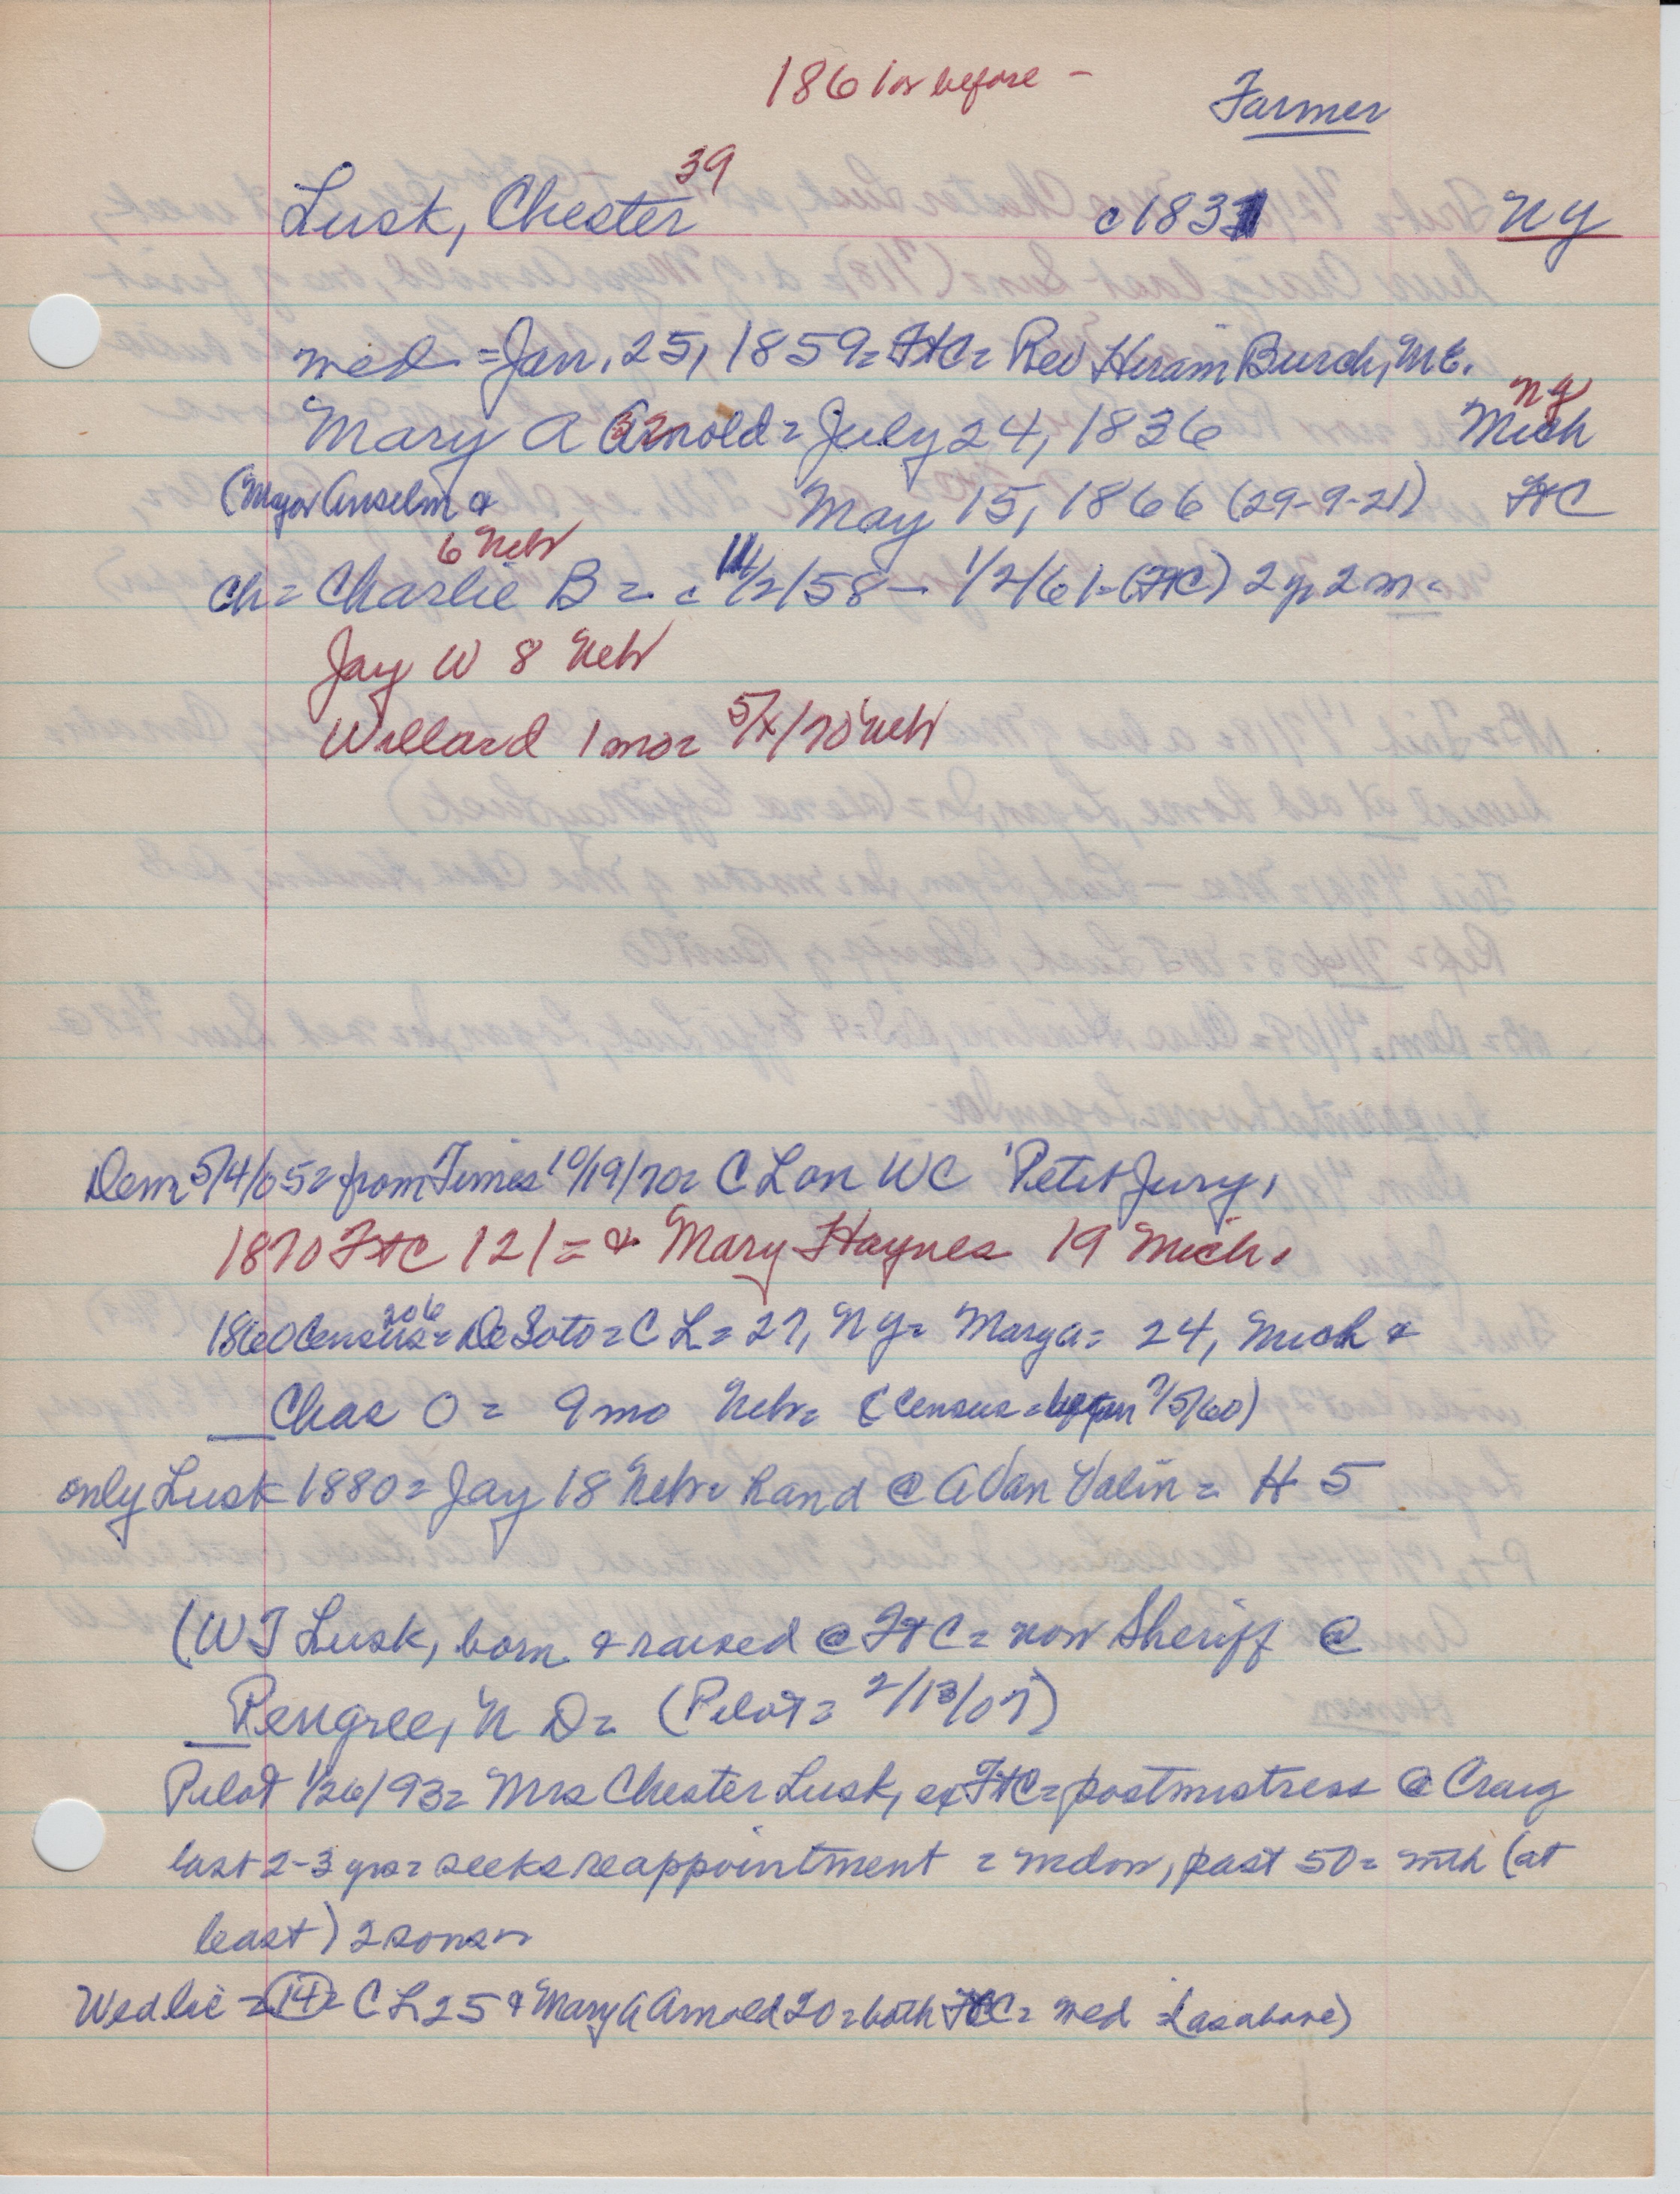 1861 or before -
Farmer
39
Lusk, Chester c1831 NY
wed = Jan. 25, 1859 = FtC = Rev Hiram Burch, ME.
NY
Mary A Arnold = July 24, 1836 Mich
(Major Anselm & May 15, 1866 (29-9-21) FtC
6 Nebr
ch = Charlie B = c 11/2/58 - 1/2/61 - (FtC) 2 y, 2 m -
Jay W 8 Nebr
Willard 1 mo = 5/x/70 Nebr
Dem 5/4/05 = from Times 10/19/70 = C L on WC Petit Jury,
1870 FtC 121 = & Mary Haynes 19 Mich.
206
1860 Census = DeSoto = C L = 27, NY = Mary A = 24, Mich &
Chas O = 9 mo Nebr = (Census = began 7/5/60)
only Lusk 1880 = Jay 18 Nebr = hand @ A Van Valin = H 5
(W T Lusk, born & raised @ FtC = now Sheriff @
Pengree, N D = (Pilot = 2/13/07)
Pilot 1/26/93 = Mrs Chester Lusk, ex FtC = postmistress @ Craig
last 2-3 yrs = seeks reappointment = widow, past 50 = with (at
least) 2 sons =
Wed lic = 14 = C L 25 & Mary A Arnold 20 = both FtC = wed (as above)